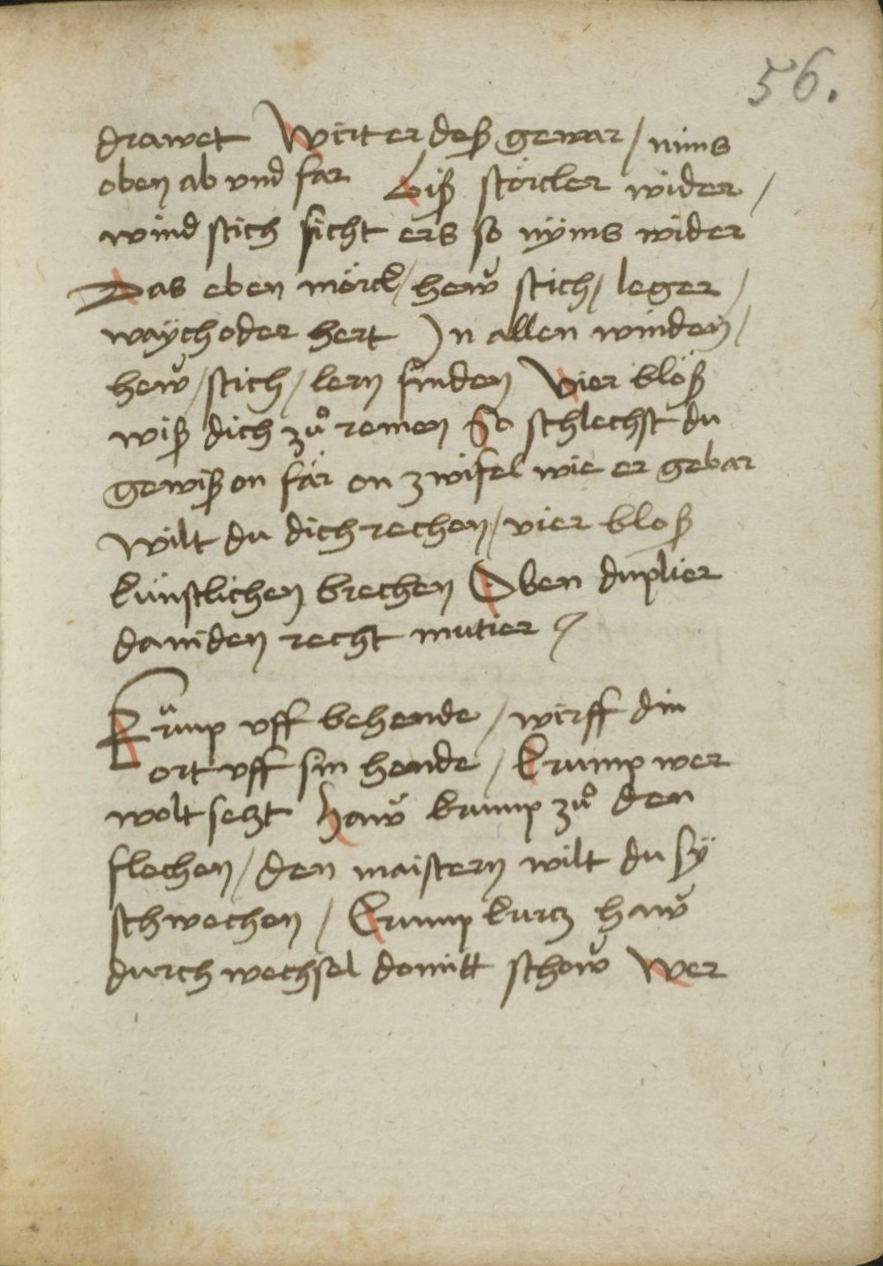 56.
drawet Wirt er deß gewar / nims
oben ab vnd far Biß störcker wider /
wind stich sicht ers so nÿms wider
Das eben mörck / hew̆ stich / leger /
waÿch oder hert In allen winden /
hew̆ / stich / lern finden Vier blöß
wiß dich zů remen So schlechst du
gewiß on fär on zwifel wie er gebar
Wilt du dich rechen / vier bloß
künstlichen brechen Oben duplier
da niden recht mutier
Krump vff behende / wirff din
ort vff sin hende / Krump wer
wolt setzt haw̆ krump zů den
flechen / den maistern wilt du sÿ
schwechen / Krump kurtz haw̆
durchwechsel domitt schow̆ Wer